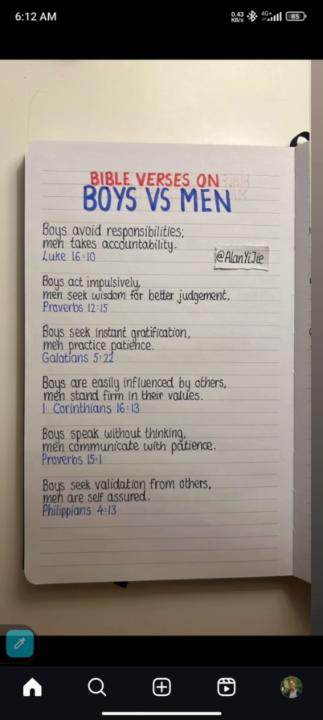 6:12 AM
0.43
KB/s
4G+
85
BIBLE VERSES ON
BOYS VS MEN
Boys avoid responsibilities;
men takes accountability.
Luke 16:10
@AlanYiJie
Boys act impulsively,
men seek wisdom for better judgement.
Proverbs 12:15
Boys seek instant gratification,
men practice patience.
Galatians 5:22
Boys are easily influenced by others,
men stand firm in their values.
1 Corinthians 16:13
Boys speak without thinking,
men communicate with patience.
Proverbs 15:1
Boys seek validation from others,
men are self assured.
Philippians 4:13